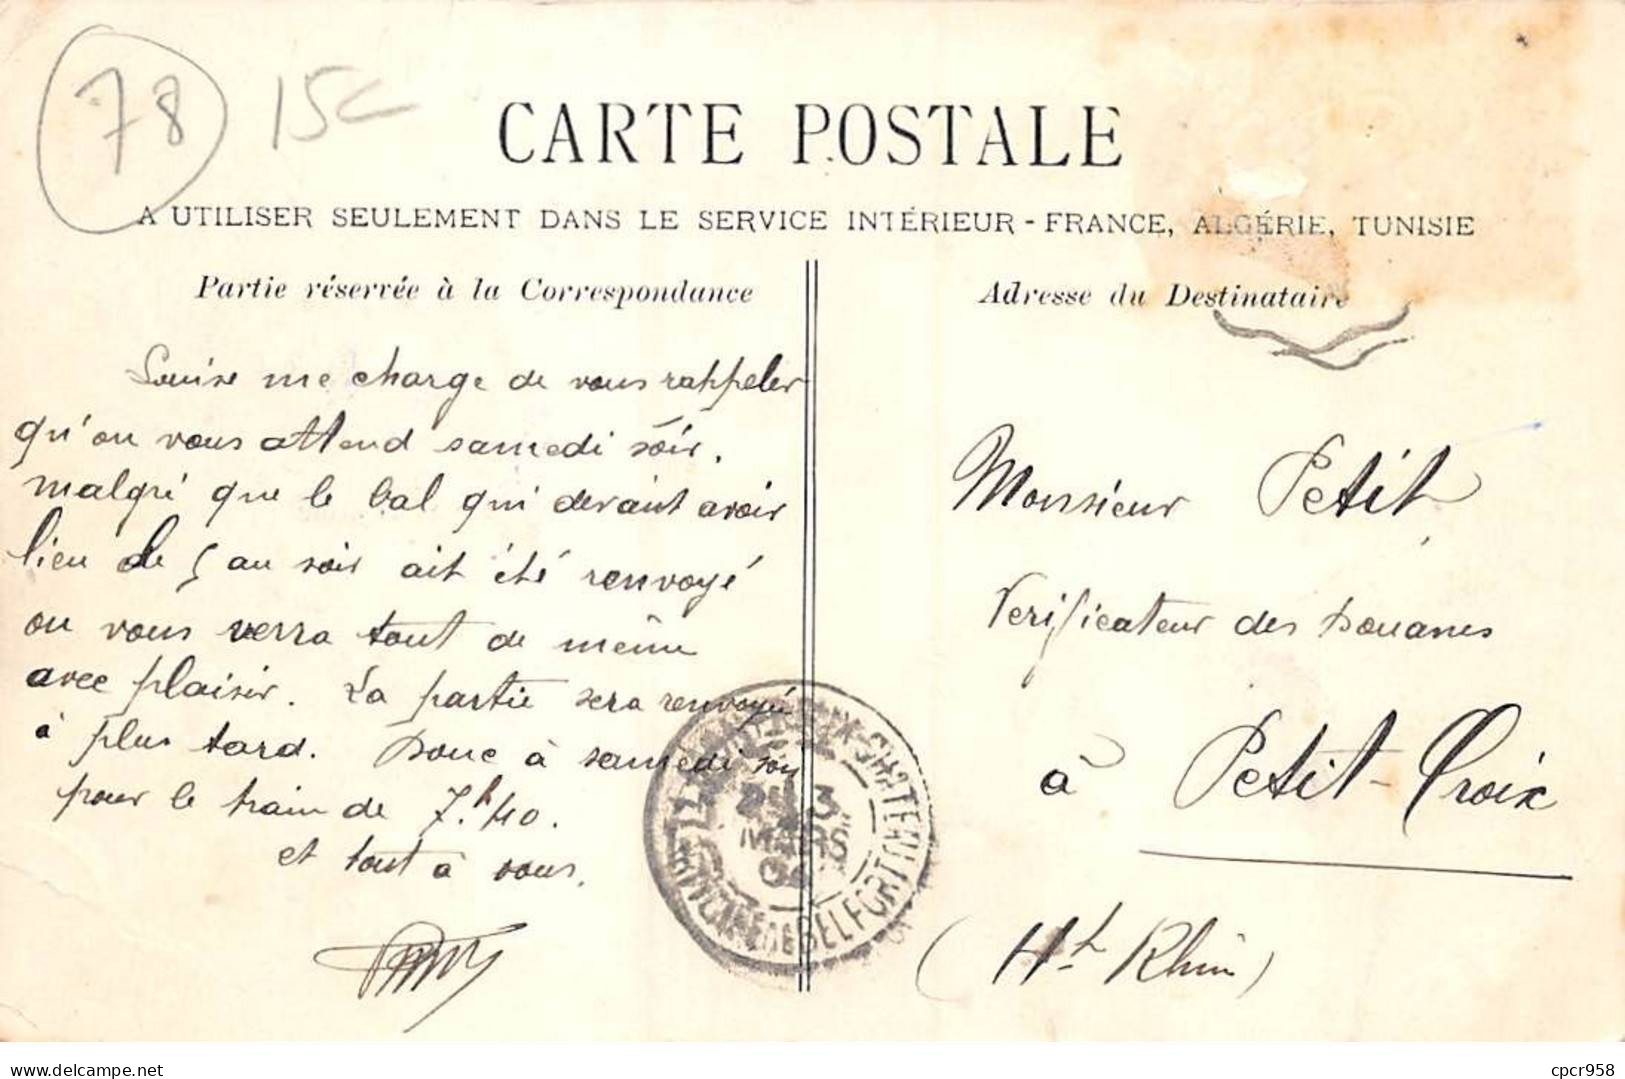 78 15c
CARTE POSTALE
A UTILISER SEULEMENT DANS LE SERVICE INTÉRIEUR - FRANCE, ALGÉRIE, TUNISIE
Partie réservée à la Correspondance
Louise me charge de vous rappeler
qu'on vous attend samedi soir.
malgré que le bal qui devait avoir
lieu de 5 au soir ait été renvoyé
on vous verra tout de même
avec plaisir. La partie sera renvoyée
à plus tard. Donc à samedi soir
pour le train de 7.h 40.
et tout à vous.
Adresse du Destinataire
Monsieur Petit
Verificateur des Douanes
à Petit-Croix
(Ht Rhin)
3
MARS
BELFORT
delcampe.net
cpcr958